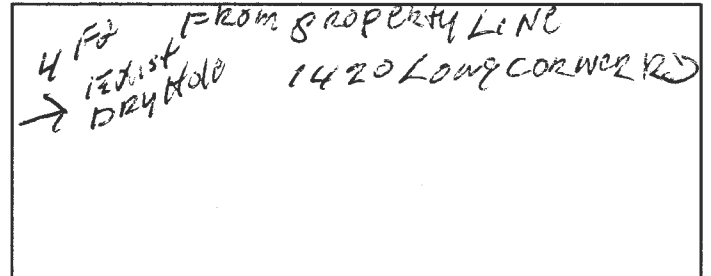 4 Ft From Property Line
Exist
→ Dry Hole 1420 Long Corner Rd